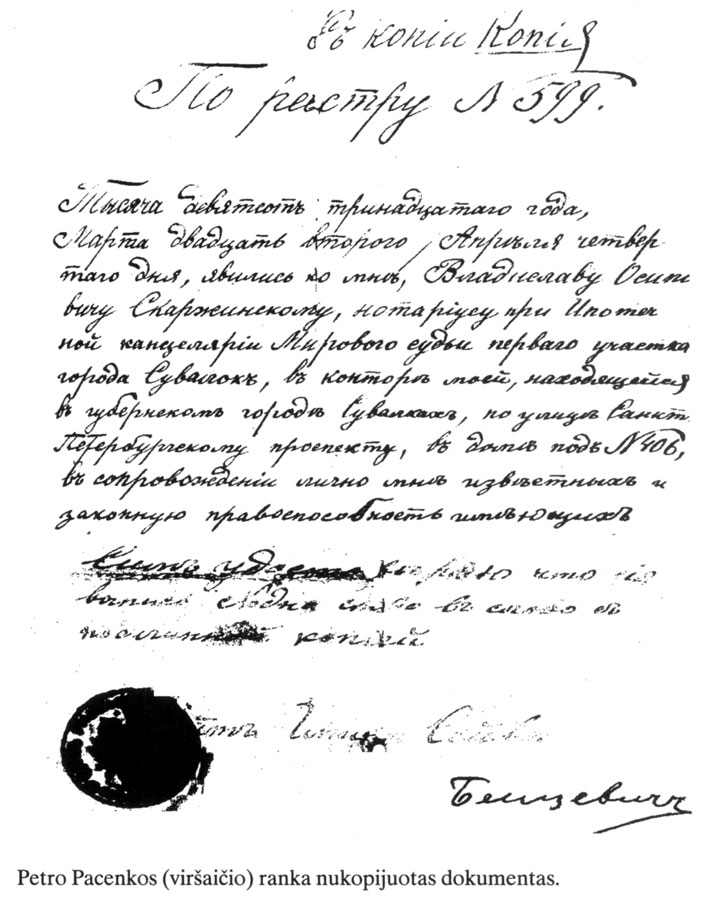 Съ копіи Копія
По реэстру N 599.
Тысяча девятсотъ тринадцатаго года,
Марта двадцать второго / Апрѣля четвер
таго дня, явились ко мнѣ, Владиславу Осипо
вичу Скаржинскому, нотаріусу при Ипотеч
ной канцеляріи Мирового судьи перваго участка
города Сувалокъ, въ конторѣ моей, находящейся
въ губернскомъ городѣ Сувалкахъ, по улицѣ Санкт
Петербургскому проспекту, въ домѣ подъ N 406,
въ сопровожденіи лично мнѣ извѣстныхъ и
законную правоспособность имѣющихъ
что сія
слово въ слово съ
копіей
Petro Pacenkos (viršaičio) ranka nukopijuotas dokumentas.